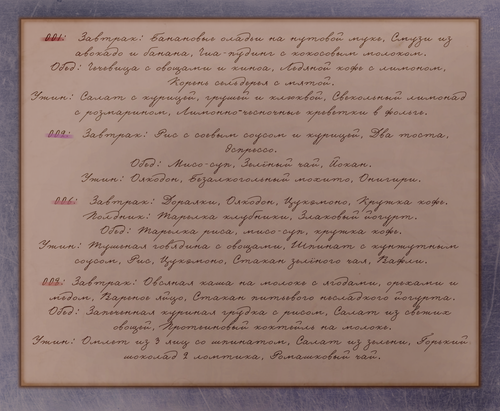 001: Завтрак: Банановые оладьи на нутовой муке, Смузи из
авокадо и банана, Чиа-пудинг с кокосовым молоком.
Обед: Чечевица с овощами и киноа, Ледяной кофе с лимоном,
Корень сельдерея с мятой.
Ужин: Салат с курицей, грушей и клюквой, Свекольный лимонад
с розмарином, Лимонно-чесночные креветки в фольге.
009: Завтрак: Рис с соевым соусом и курицей, Два тоста,
Эспрессо.
Обед: Мисо-суп, Зелёный чай, Йокан.
Ужин: Оякодон, Безалкогольный мохито, Онигири.
006: Завтрак: Дораяки, Оякодон, Цукэмоно, Кружка кофе.
Полдник: Тарелка клубники, Злаковый йогурт.
Обед: Тарелка риса, мисо-суп, кружка кофе.
Ужин: Тушеная говядина с овощами, Шпинат с кунжутным
соусом, Рис, Цукэмоно, Стакан зелёного чая, Вафли.
004: Завтрак: Овсяная каша на молоке с ягодами, орехами и
мёдом, Вареное яйцо, Стакан питьевого несладкого йогурта.
Обед: Запеченная куриная грудка с рисом, Салат из свежих
овощей, Протеиновый коктейль на молоке.
Ужин: Омлет из 3 яиц со шпинатом, Салат из зелени, Горький
шоколад 2 ломтика, Ромашковый чай.